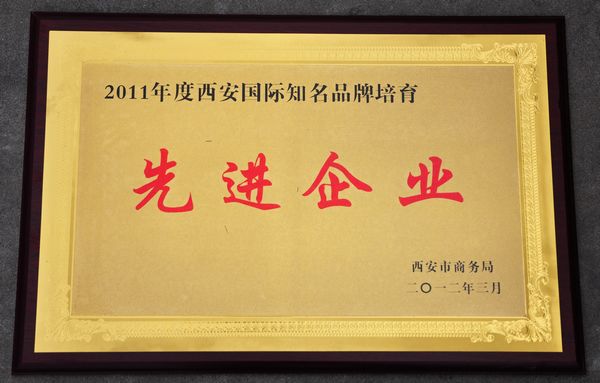 2011年度西安国际知名品牌培育
先进企业
西安市商务局
二〇一二年三月